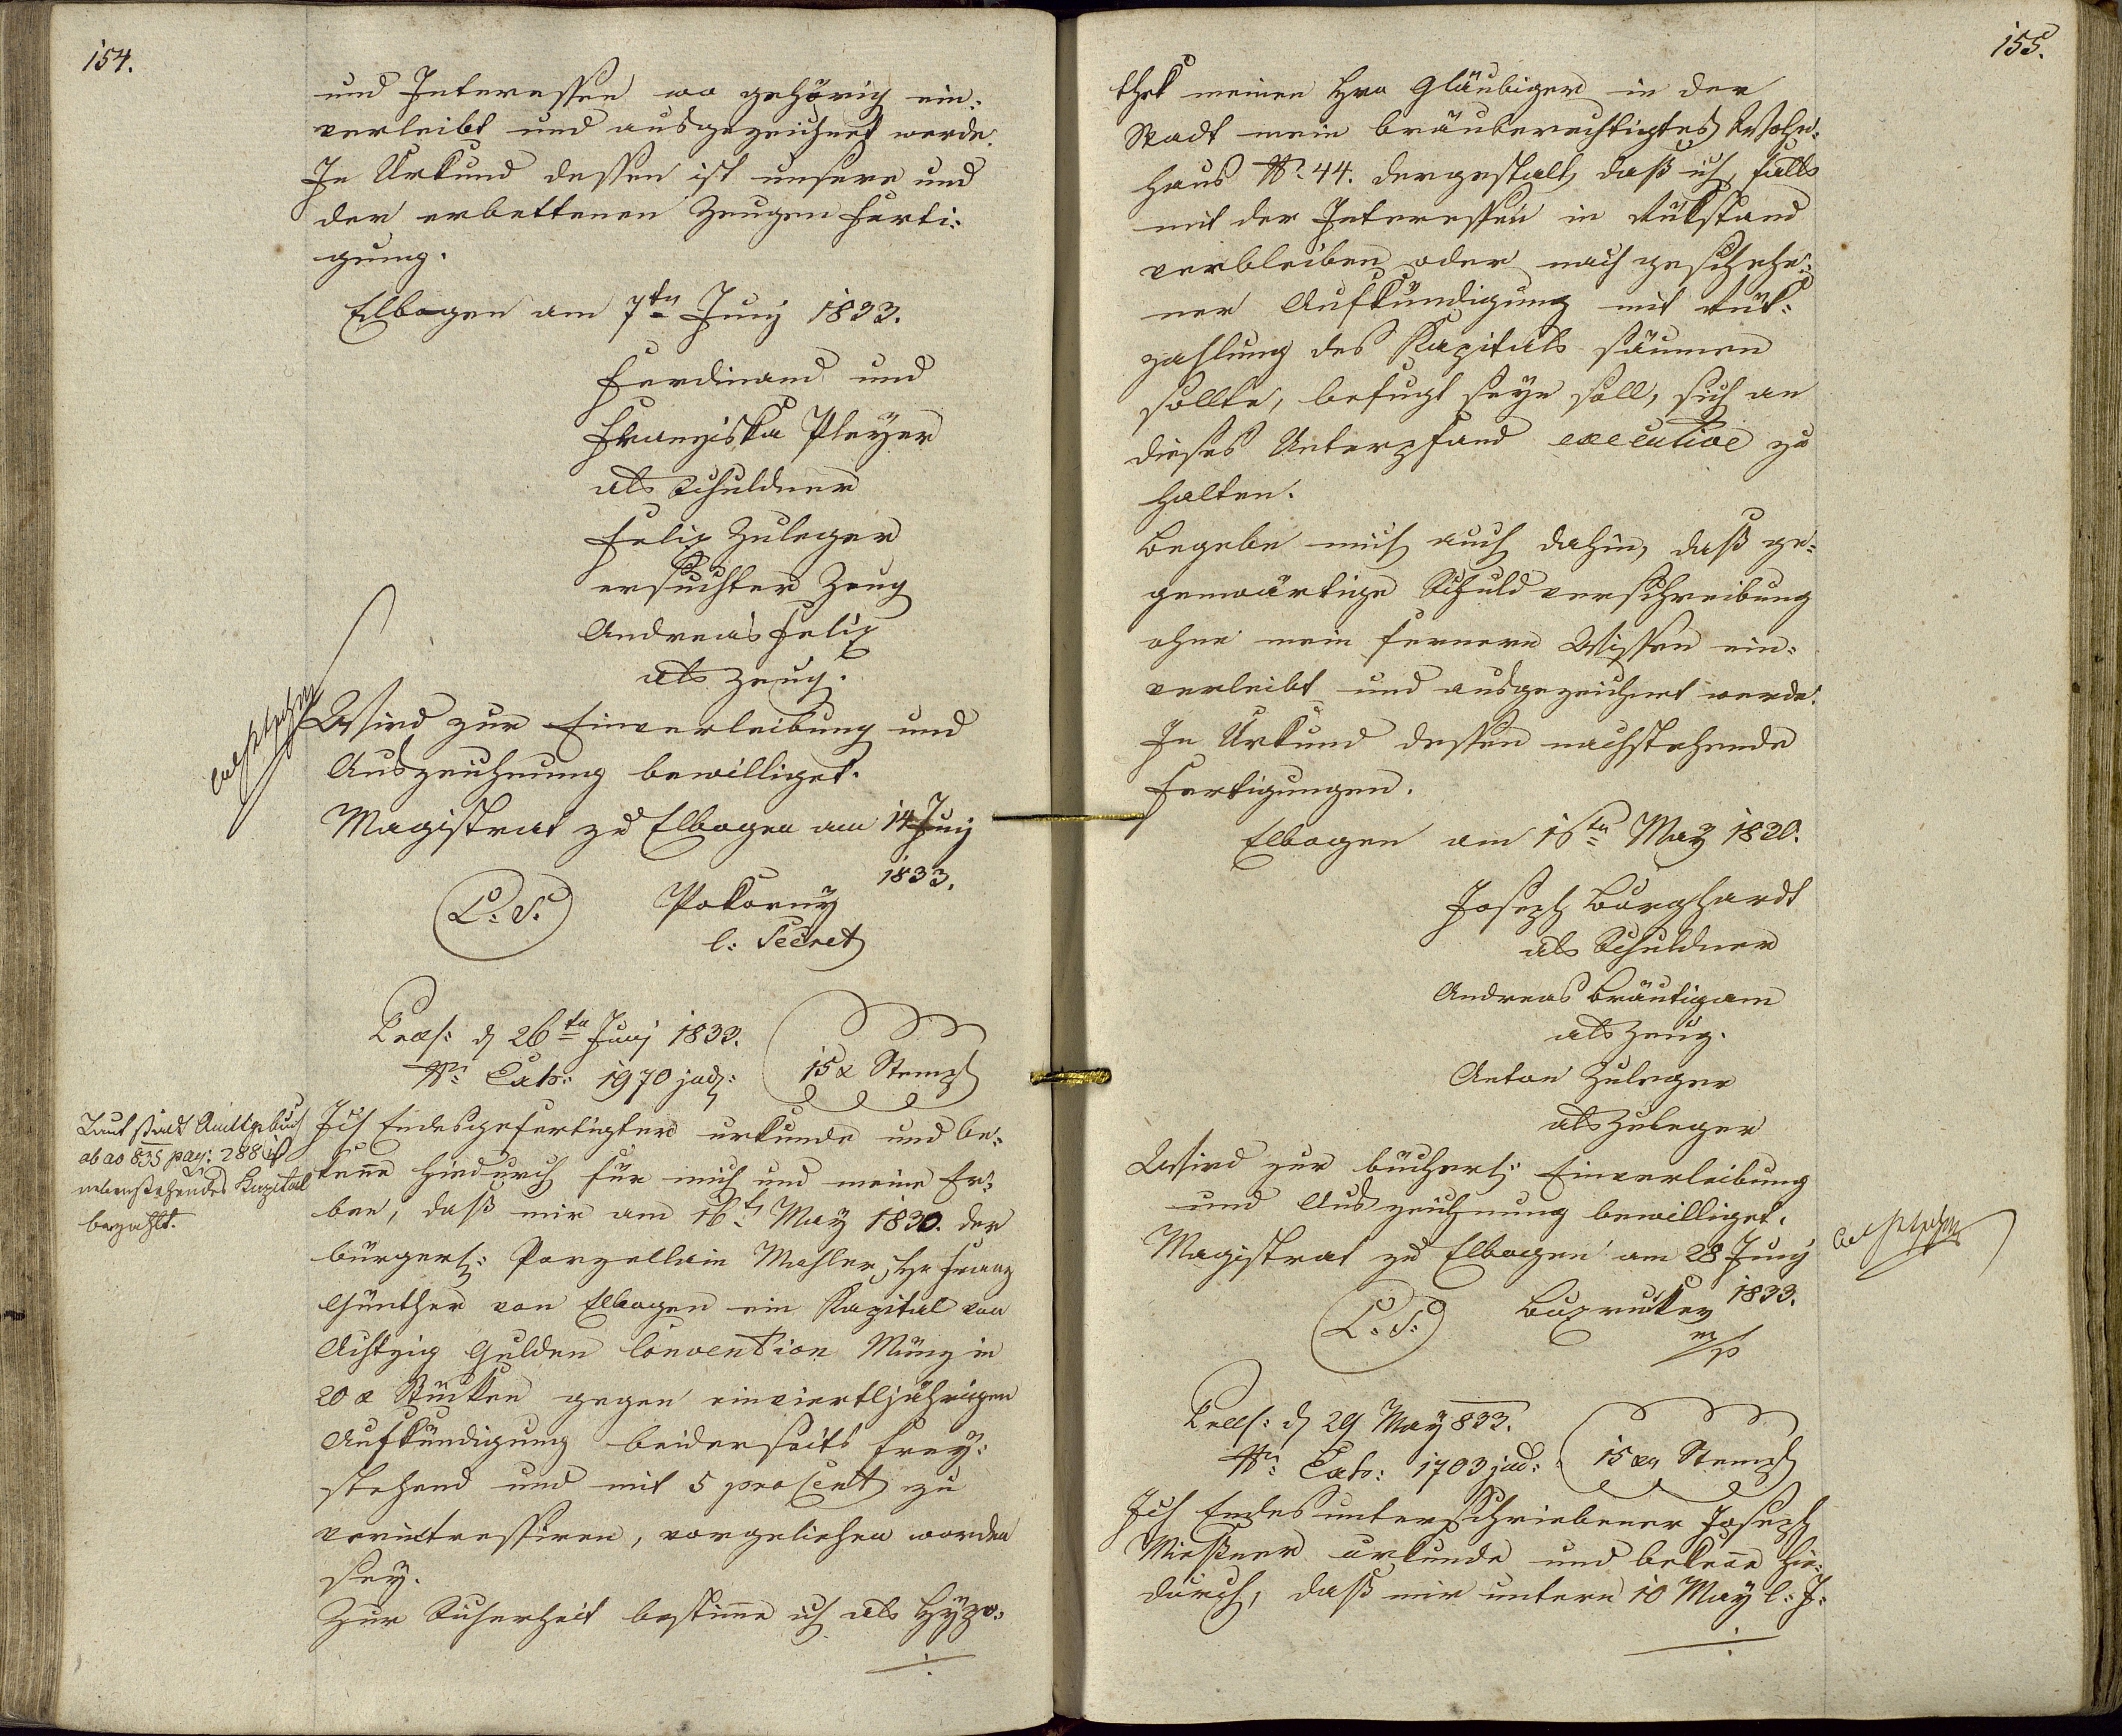 154.
und Interessen wo gehörig ein:
verleibt und ausgezeichnet werde.
In Urkund dessen ist unsere und
der erbettenen Zeugen Ferti:
gung.
Elbogen am 7tn Juny 1833.
Ferdinand und
Franziska Pleyer
als Schuldner
Felix Zuleger
ersuchter Zeug
Andreas Felix
als Zeug.
Wird zur Einverleibung und
Auszeichnung bewilliget.
Magistrat zu Elbogen am 14 Juny
1833.
L. S. Pokorny
l: Secret
Praes: d 26tn Juny 1833.
Nr: Exh: 1970 jud:
15 x Stempl
Laut Stadt Quittgbuch
ab ao 835 pag: 288 ist
nebenstehendes Kapital
bezahlt.
Ich Endesgefertigter urkunde und be:
kene hiedurch für mich und meine Er:
ben, daß mir am 16t May 1830. der
bürgerl: Porzellain Mahler Hr Franz
Günther von Elbogen ein Kapital von
Achtzig Gulden Convention Münz in
20 x Stücken gegen einviertljährigen
Aufkündigung beiderseits frey:
stehend und mit 5 pro Cent zu
verintressiren, vorgeliehen worden
sey.
Zur Sicherheit bestime ich als Hypo:
155.
thek meinen Hrn Gläubiger in der
Stadt mein bräuberechtigtes Wohn:
haus Nr. 44. dergestalt, daß ich, falls
mit der Interessen in Rükstand
verbleiben oder nach geschehe:
ner Aufkündigung mit Rük:
zahlung des Kapitals säumen
sollte, befugt seyn soll, sich an
dieses Unterpfand executive zu
halten.
Begebe mich auch dahin, daß ge:
genwärtige Schuldverschreibung
ohne mein fernere Wissen ein:
verleibt und ausgezeichnet werde.
In Urkund dessen nachstehende
Fertigungen.
Elbogen am 16tn May 1830.
Joseph Burghardt
als Schuldner
Andreas Bräutigam
als Zeug.
Anton Zuleger
als Zuleger
Wird zur bücherl: Einverleibung
und Auszeichnung bewilliget.
Magistrat zu Elbogen am 28 Juny
1833.
L. S.
m/p
Praes: d 29 May 833.
Nr: Exh: 1703 jud:
15 xr Stempl
Ich Endesunterschriebener Joseph
Meßner urkunde und bekene hie:
durch, daß mir unterm 10 May l: J: